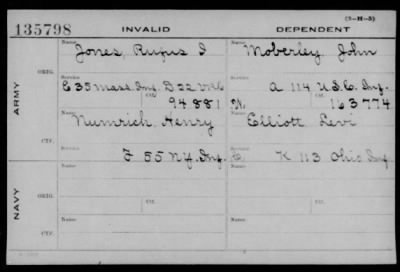 (3-H-5)
135798 INVALID DEPENDENT
Name Name
Jones, Rufus I Moberley, John
ORIG.
Service Service
E 35 Mass. Inf. D 22 VRC A 114 U.S.C. Inf.
Ctf. Ctf.
94881 W. 163774
ARMY
Name Name
Numrich, Henry Elliott Levi
CTF.
Service Service
F 55 N.Y. Inf. E. K 113 Ohio Inf.
Name Name
NAVY
ORIG.
Ctf. Ctf.
Name Name
CTF.